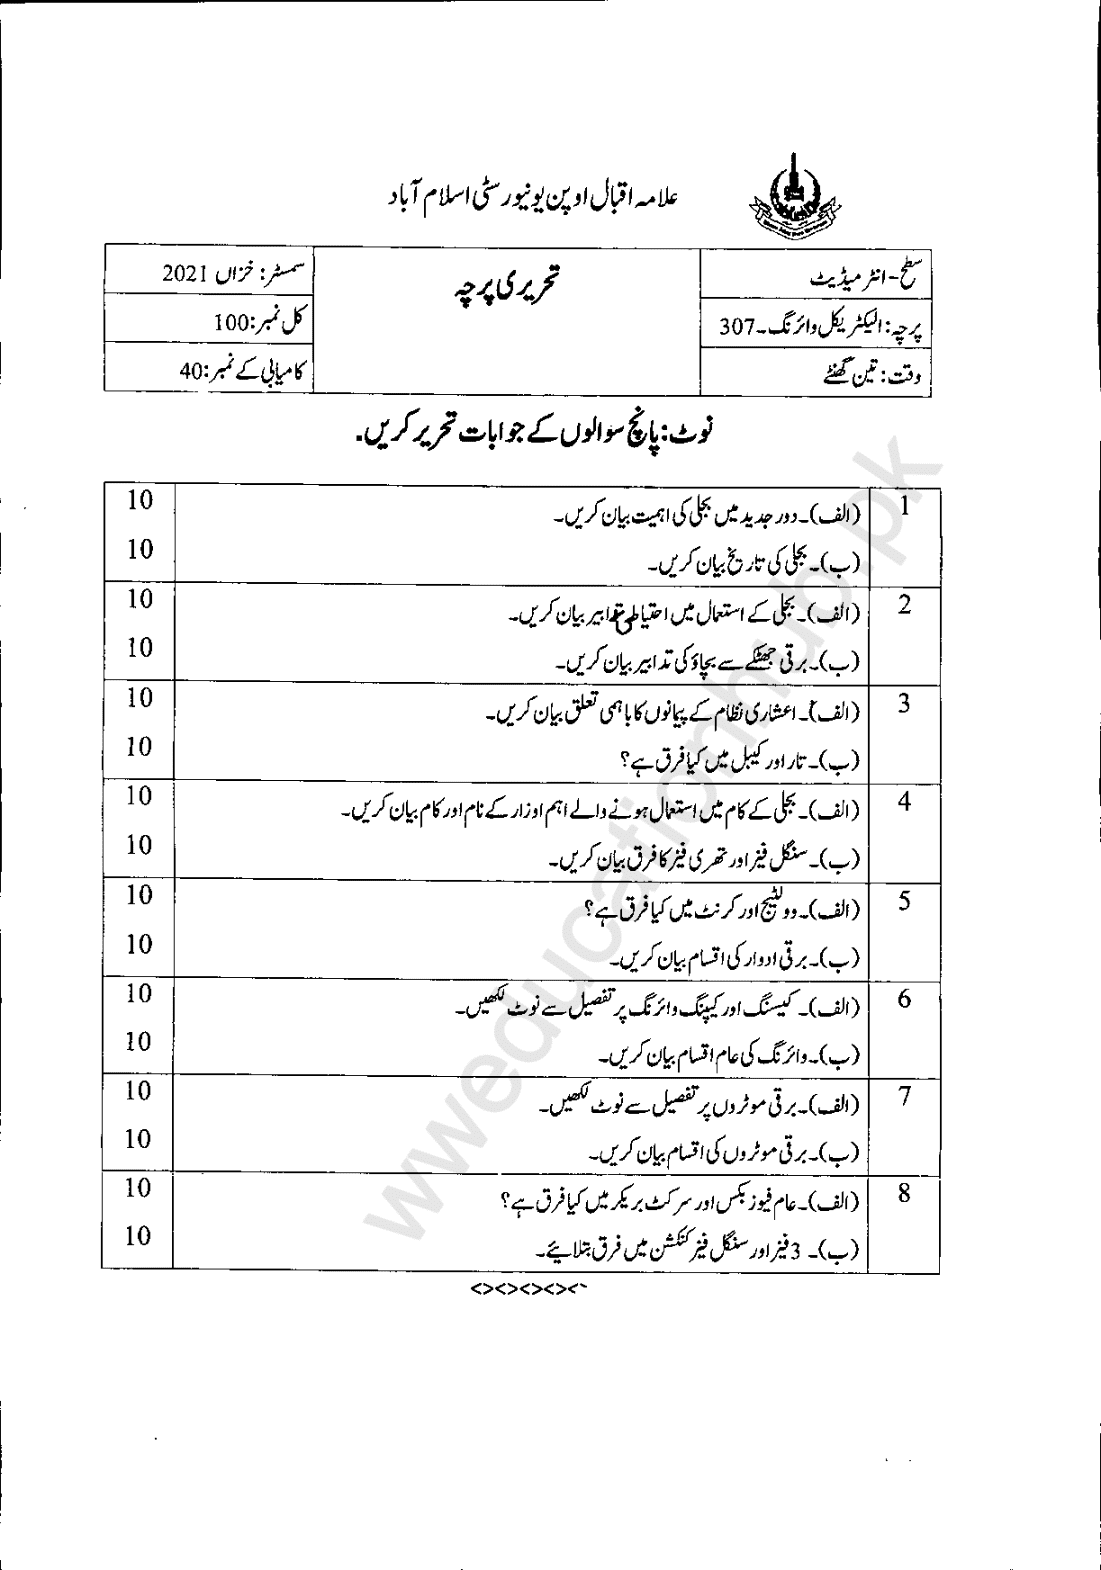 علامہ اقبال اوپن یونیورسٹی اسلام آباد
سطح-انٹرمیڈیٹ
تحریری پرچہ
سمسٹر: خزاں 2021
پرچہ: الیکٹریکل وائرنگ-307
کل نمبر:100
وقت: تین گھنٹے
کامیابی کے نمبر:40
نوٹ: پانچ سوالوں کے جوابات تحریر کریں.
1 (الف)۔دور جدید میں بجلی کی اہمیت بیان کریں۔ 10
(ب)۔بجلی کی تاریخ بیان کریں۔ 10
2 (الف)۔بجلی کے استعمال میں احتیاطی تدابیر بیان کریں۔ 10
(ب)۔برقی جھٹکے سے بچاؤ کی تدابیر بیان کریں۔ 10
3 (الف)۔اعشاری نظام کے پیمانوں کا باہمی تعلق بیان کریں۔ 10
(ب)۔تار اور کیبل میں کیا فرق ہے؟ 10
4 (الف)۔بجلی کے کام میں استعمال ہونے والے اہم اوزار کے نام اور کام بیان کریں۔ 10
(ب)۔سنگل فیز اور تھری فیز کا فرق بیان کریں۔ 10
5 (الف)۔وولٹیج اور کرنٹ میں کیا فرق ہے؟ 10
(ب)۔برقی ادوار کی اقسام بیان کریں۔ 10
6 (الف)۔کیسنگ اور کیپنگ وائرنگ پر تفصیل سے نوٹ لکھیں۔ 10
(ب)۔وائرنگ کی عام اقسام بیان کریں۔ 10
7 (الف)۔برقی موٹروں پر تفصیل سے نوٹ لکھیں۔ 10
(ب)۔برقی موٹروں کی اقسام بیان کریں۔ 10
8 (الف)۔عام فیوز بکس اور سرکٹ بریکر میں کیا فرق ہے؟ 10
(ب)۔ 3 فیز اور سنگل فیز کنکشن میں فرق بتلائیے۔ 10
<><><><><-
weducationhub.pk